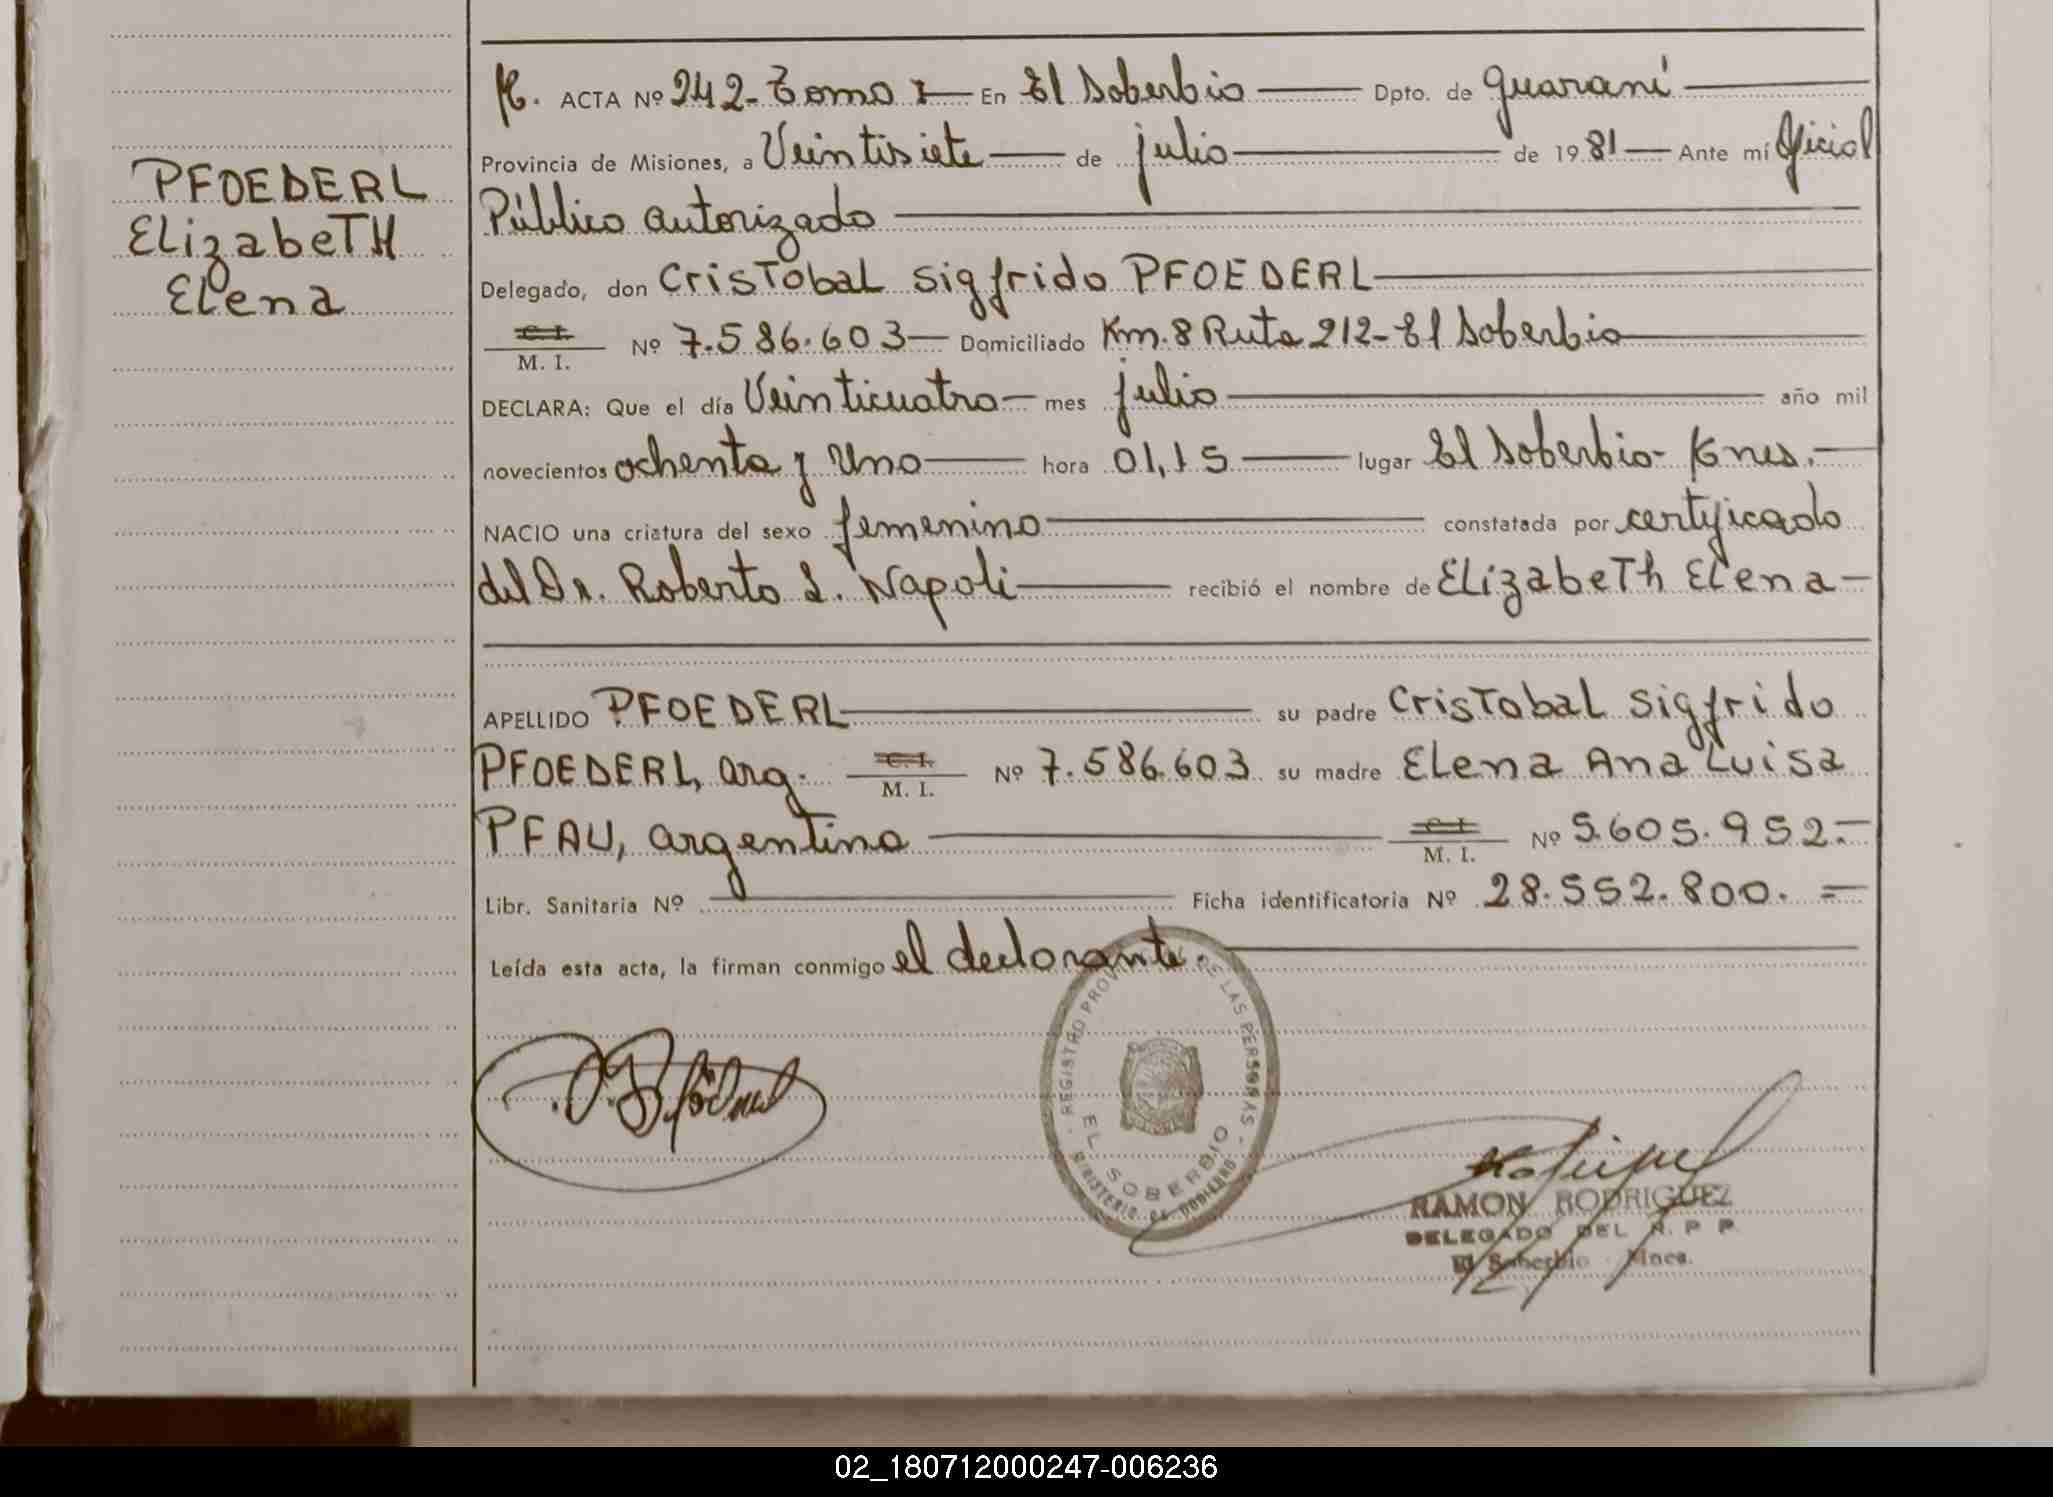 PFOEDERL
ELizabeTH
Elena
ACTA Nº 242-Tomo I En El Soberbio Dpto. de Guaraní
Provincia de Misiones, a Veintisiete de julio de 1981 Ante mí Oficial
Público autorizado
Delegado, don CrisTobal Sigfrido PFOEDERL
C. I.
M. I. Nº 7.586.603 Domiciliado Km. 8 Ruta 212-El Soberbio
DECLARA: Que el día Veinticuatro mes julio año mil
novecientos ochenta y Uno hora 01,15 lugar El Soberbio-
NACIO una criatura del sexo femenino constatada por certificado
del Dr. Roberto L. Napoli recibió el nombre de ELizabeTh Elena
APELLIDO PFOEDERL su padre CrisTobal Sigfrido
PFOEDERL, arg. C. I. M. I. Nº 7.586.603 su madre ELena Ana Luisa
PFAU, argentina C. I. M. I. Nº 5.605.952.
Libr. Sanitaria Nº Ficha identificatoria Nº 28.552.800.
Leída esta acta, la firman conmigo el declarante.
REGISTRO PROV DE LAS PERSONAS
EL SOBERBIO
MINISTERIO DE GOBIERNO
RAMON RODRIGUEZ
DELEGADO DEL R. P P.
El Soberbio Mnes.
02_180712000247-006236